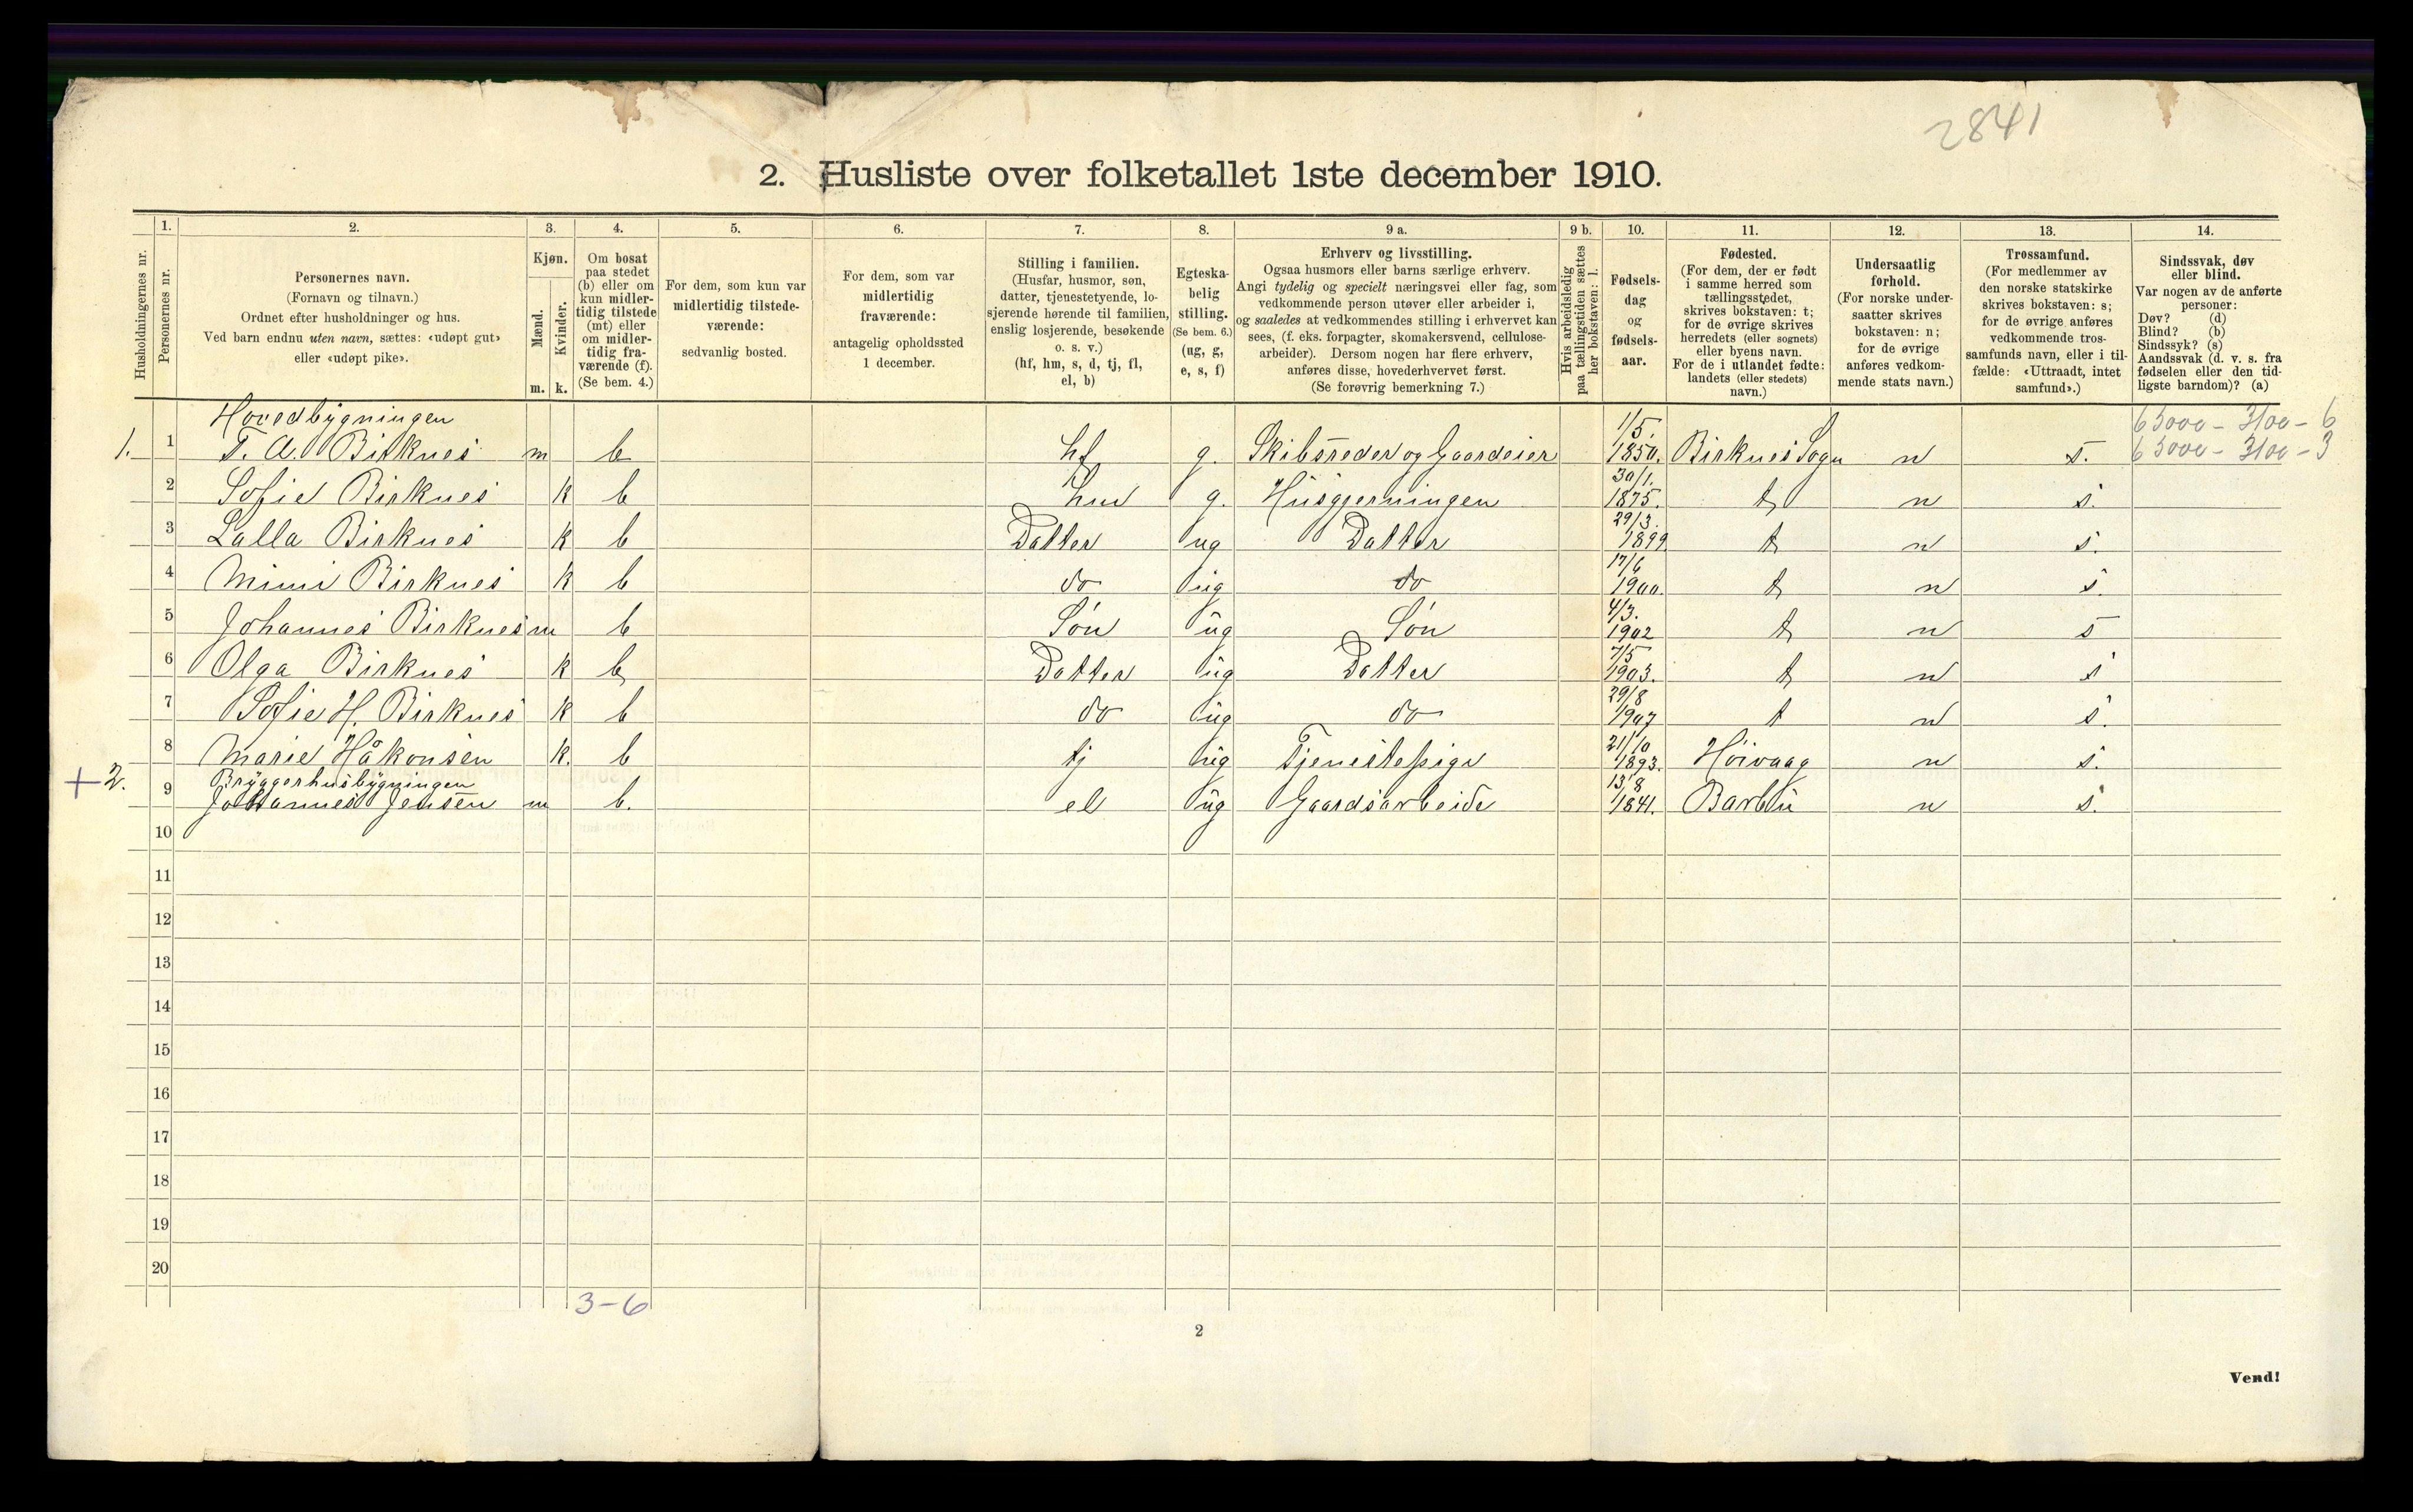 2841
2. Husliste over folketallet 1ste december 1910.
Husholdningernes nr.
1.
Personernes nr.
2.
Personernes navn.
(Fornavn og tilnavn.)
Ordnet efter husholdninger og hus.
Ved barn endnu uten navn, sættes: «udøpt gut»
eller «udøpt pike».
3.
Kjøn.
Mænd.
Kvinder.
m. k.
4.
Om bosat
paa stedet
(b) eller om
kun midler-
tidig tilstede
(mt) eller
om midler-
tidig fra-
værende (f).
(Se bem. 4.)
5.
For dem, som kun var
midlertidig tilstede-
værende:
sedvanlig bosted.
6.
For dem, som var
midlertidig
fraværende:
antagelig opholdssted
1 december.
7.
Stilling i familien.
(Husfar, husmor, søn,
datter, tjenestetyende, lo-
sjerende hørende til familien,
enslig losjerende, besøkende
o. s. v.)
(hf, hm, s, d, tj, fl,
el, b)
8.
Egteska-
belig
stilling.
(Se bem. 6.)
(ug, g,
e, s, f)
9 a.
Erhverv og livsstilling.
Ogsaa husmors eller barns særlige erhverv.
Angi tydelig og specielt næringsvei eller fag, som
vedkommende person utøver eller arbeider i,
og saaledes at vedkommendes stilling i erhvervet kan
sees, (f. eks. forpagter, skomakersvend, cellulose-
arbeider). Dersom nogen har flere erhverv,
anføres disse, hovederhvervet først.
(Se forøvrig bemerkning 7.)
9 b.
Hvis arbeidsledig
paa tællingstiden sættes
her bokstaven: l.
10.
Fødsels-
dag
og
fødsels-
aar.
11.
Fødested.
(For dem, der er født
i samme herred som
tællingsstedet,
skrives bokstaven: t;
for de øvrige skrives
herredets (eller sognets)
eller byens navn.
For de i utlandet fødte:
landets (eller stedets)
navn.)
12.
Undersaatlig
forhold.
(For norske under-
saatter skrives
bokstaven: n;
for de øvrige
anføres vedkom-
mende stats navn.)
13.
Trossamfund.
(For medlemmer av
den norske statskirke
skrives bokstaven: s;
for de øvrige anføres
vedkommende tros-
samfunds navn, eller i til-
fælde: «Uttraadt, intet
samfund».)
14.
Sindssvak, døv
eller blind.
Var nogen av de anførte
personer:
Døv? (d)
Blind? (b)
Sindssyk? (s)
Aandssvak (d. v. s. fra
fødselen eller den tid-
ligste barndom)? (a)
Hovedbygningen 65000 - 3100 - 6
1. 1 T. A. Birknes m b hf g. Skibsreder og Gaardeier 1/5. 1850. Birknes Sogn n s. 65000 - 3100 - 3
2 Sofie Birknes k b hm g. Husgjerningen 30/1. 1875. t n s.
3 Lalla Birknes k b Datter ug Datter 29/3. 1899 t n s.
4 Mimi Birknes k b do ug do 17/6 1900. t n s.
5 Johannes Birknes m b Søn ug Søn 4/3. 1902 t n s
6 Olga Birknes k b Datter ug Datter 7/5 1903. t n s
7 Sofie H. Birknes k b do ug do 29/8 1907 t n s.
8 Marie Håkonsen k. b tj ug Tjenestepige 21/10 1893. Høivaag n s.
Bryggerhusbygningen
+ 2. 9 Johannes Jensen m b. el ug Gaardsarbeide 13/8 1841. Barbu n s.
10
11
12
13
14
15
16
17
18
19
20
3-6
2
Vend!